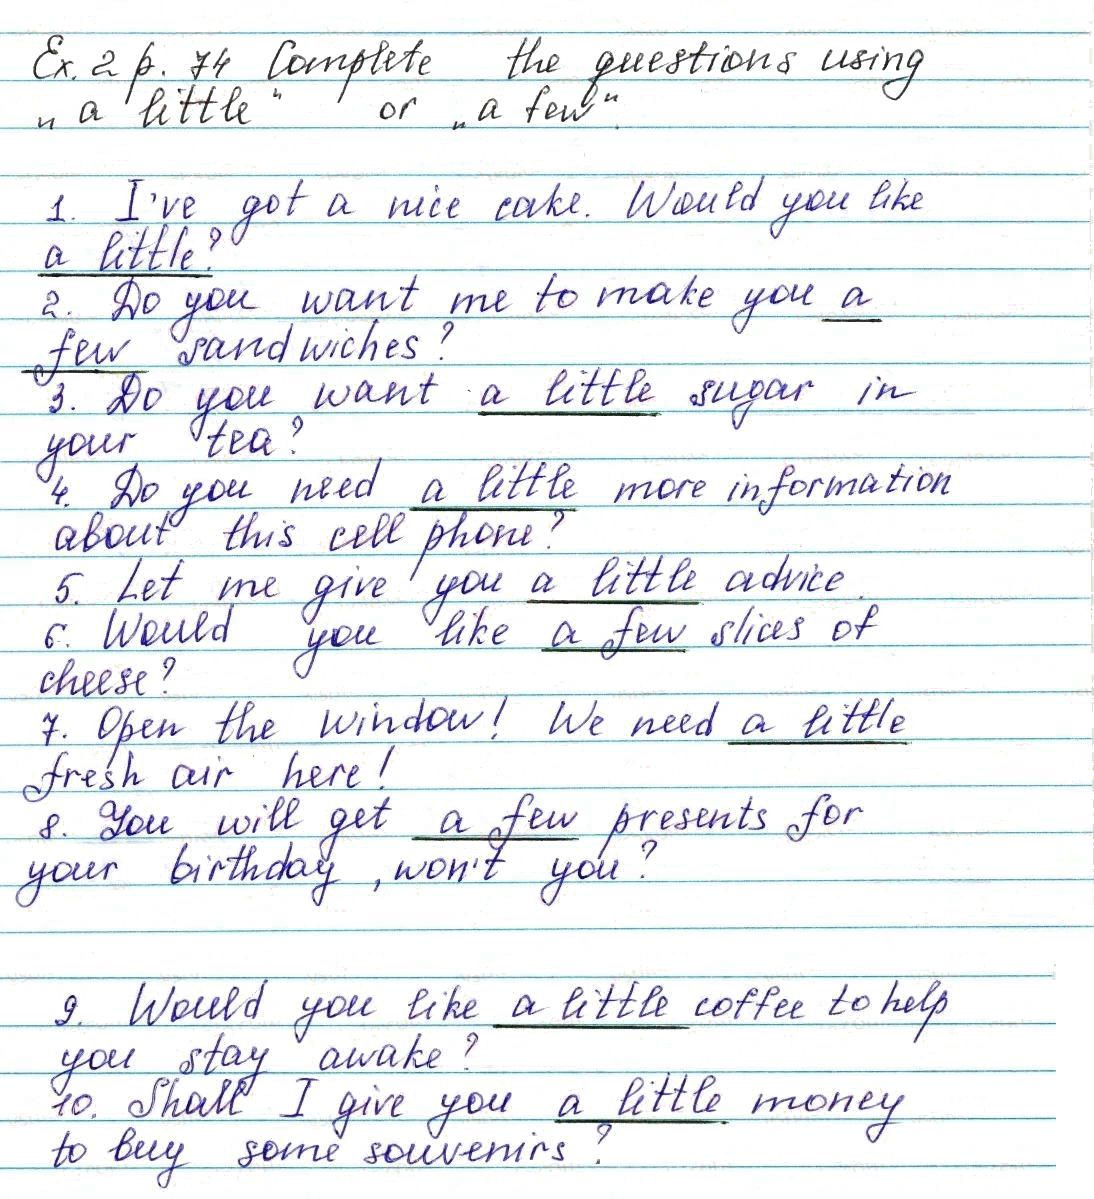 Ex. 2 p. 74 Complete the questions using
„a little“ or „a few“.
1. I've got a nice cake. Would you like
a little?
2. Do you want me to make you a
few sandwiches?
3. Do you want a little sugar in
your tea?
4. Do you need a little more information
about this cell phone?
5. Let me give you a little advice.
6. Would you like a few slices of
cheese?
7. Open the window! We need a little
fresh air here!
8. You will get a few presents for
your birthday, won't you?
9. Would you like a little coffee to help
you stay awake?
10. Shall I give you a little money
to buy some souvenirs?